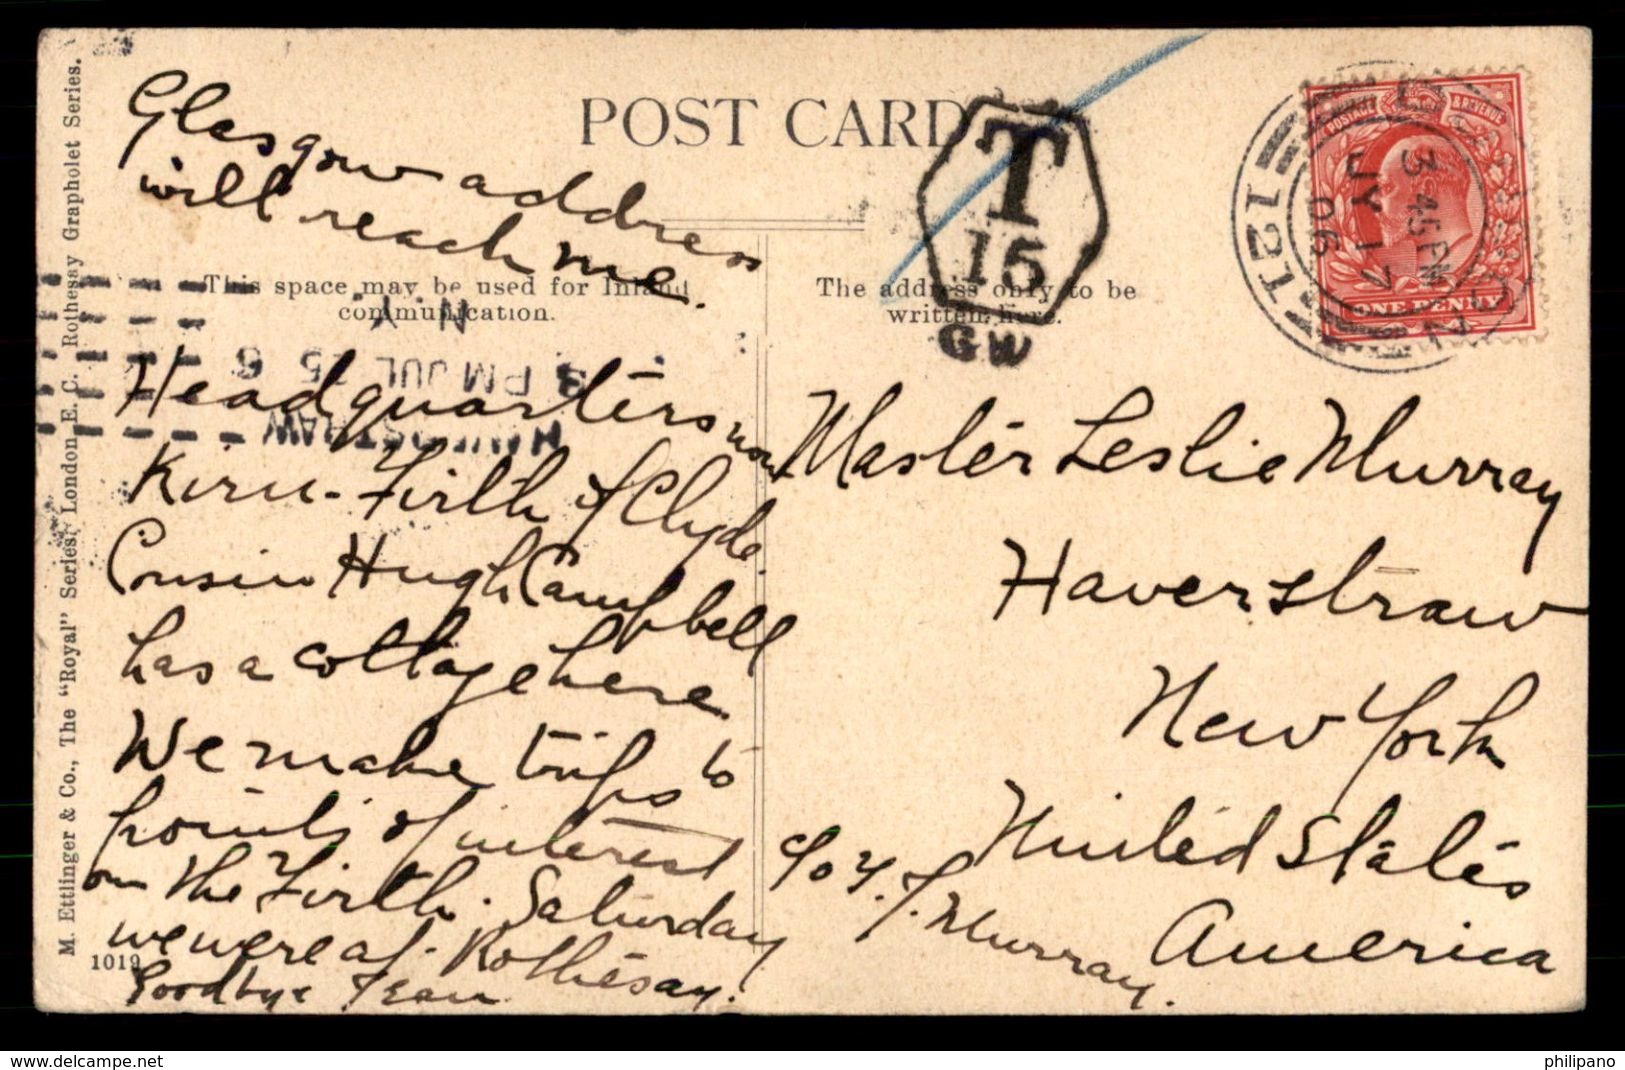 POST CARD
Glasgow address
will reach me.
This space may be used for Inland
communication.
The address only to be
written here.
T
15
GW
3 45 PM
JY 17
06
121
POSTAGE & REVENUE
ONE PENNY
HAVERSTRAW
3 PM JUL 25 6
N.Y.
Headquarters now
Kirn - Firth of Clyde.
Cousin Hugh Campbell
has a cottage here.
We make trips to
points of interest
on the Firth. Saturday
we were at Rothesay.
Goodbye
Master Leslie Murray
Haverstraw
New York
United States
America
c/o
Murray.
M. Ettlinger & Co., The "Royal" Series, London, E. C. Rothesay Grapholet Series.
1019
delcampe.net
philipano